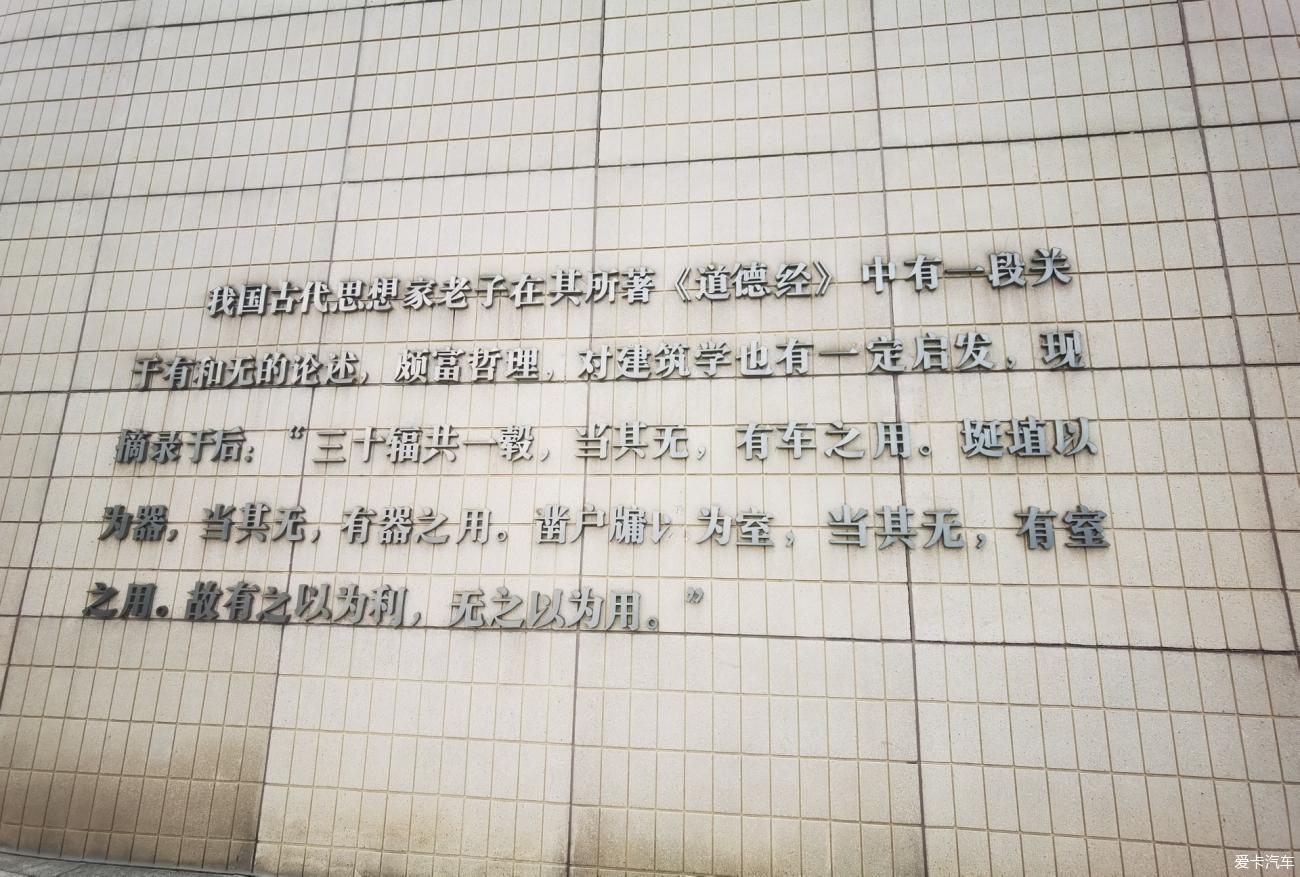 我国古代思想家老子在其所著《道德经》中有一段关
于有和无的论述，颇富哲理，对建筑学也有一定启发，现
摘录于后：“三十辐共一毂，当其无，有车之用。埏埴以
为器，当其无，有器之用。凿户牖以为室，当其无，有室
之用。故有之以为利，无之以为用。”
爱卡汽车